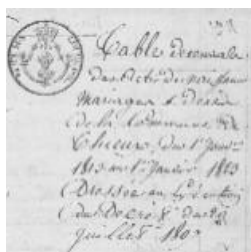 Table décennale
des actes de naissance
mariages & décès
de la Commune de
du 1er Janvier
1803 au 1er Janvier 1813
Dressée en Exécution
du Décret du 20
juillet 1807